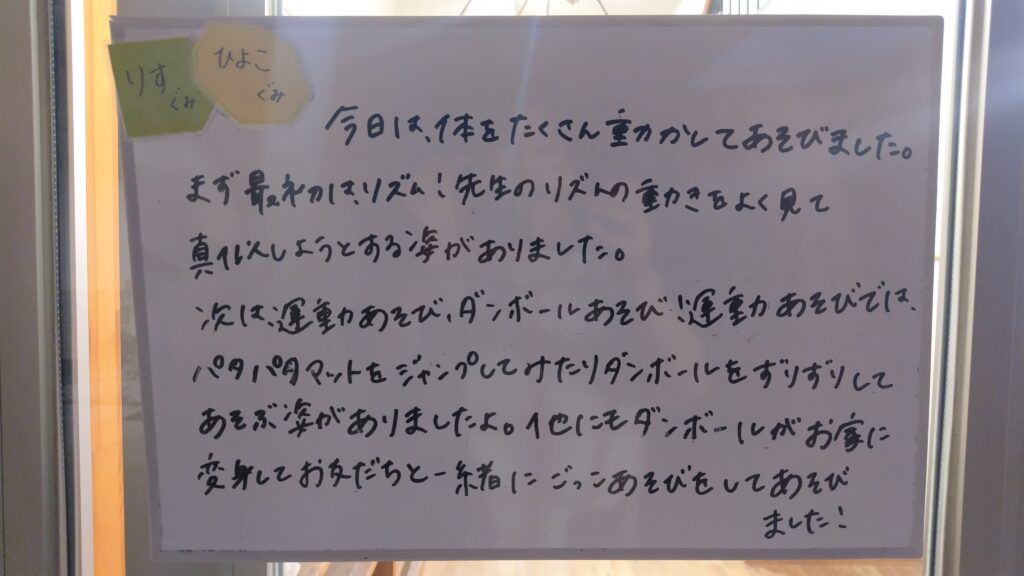 りす
ぐみ
ひよこ
ぐみ
今日は、体をたくさん動かしてあそびました。
まず最初は、リズム！先生のリズムの動きをよく見て
真似しようとする姿がありました。
次は、運動あそび、ダンボールあそび！運動あそびでは、
パタパタマットをジャンプしてみたりダンボールをずりずりして
あそぶ姿がありましたよ。他にもダンボールがお家に
変身してお友だちと一緒にごっこあそびをしてあそび
ました！